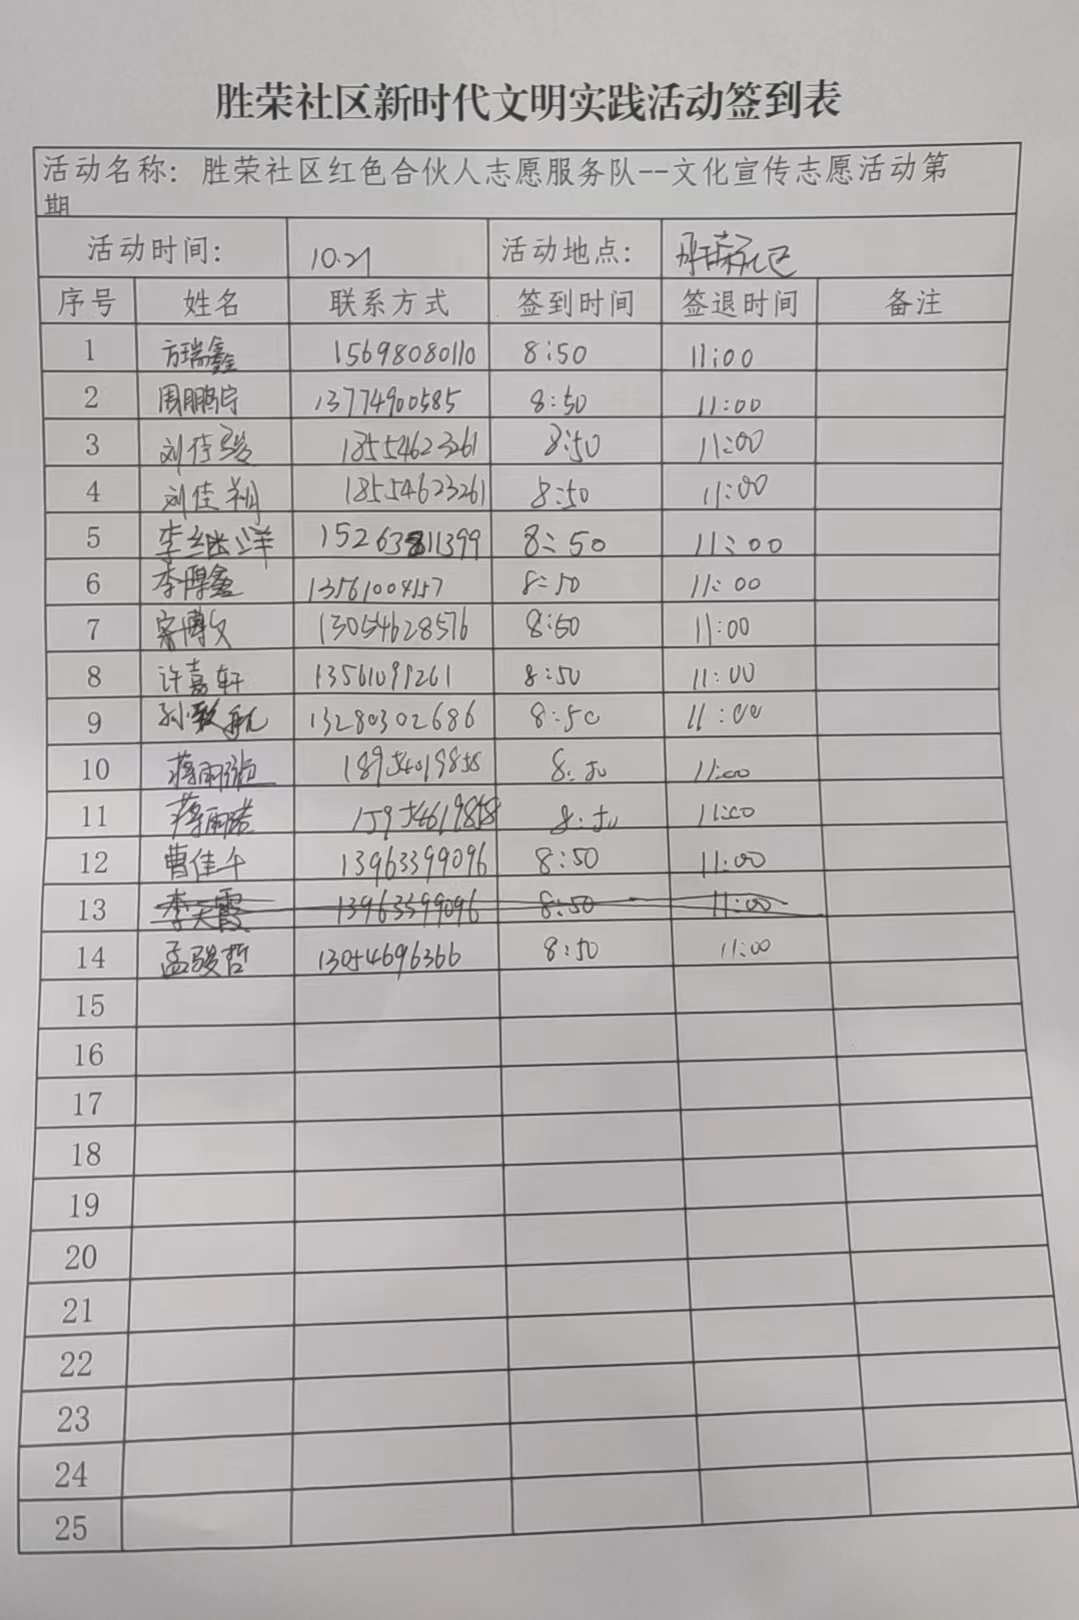 胜荣社区新时代文明实践活动签到表
活动名称：胜荣社区红色合伙人志愿服务队--文化宣传志愿活动第
期
活动时间： 10.21 活动地点： 胜荣社区
序号 姓名 联系方式 签到时间 签退时间 备注
1 方瑞鑫 15698080110 8:50 11:00
2 周鹏宇 13774900585 8:50 11:00
3 刘佳骏 18554623261 8:50 11:00
4 刘佳朔 18554623261 8:50 11:00
5 李继洋 15263811399 8:50 11:00
6 李博鑫 13561004157 8:50 11:00
7 博文 13054628576 8:50 11:00
8 许嘉轩 13561099261 8:50 11:00
9 孙致航 13280302686 8:50 11:00
10 蒋雨 18954019858 8:50 11:00
11 蒋雨诺 15954619858 8:50 11:00
12 曹佳午 13963399096 8:50 11:00
13 李天霞 13963399096 8:50 11:00
14 孟骏哲 13054696366 8:50 11:00
15
16
17
18
19
20
21
22
23
24
25